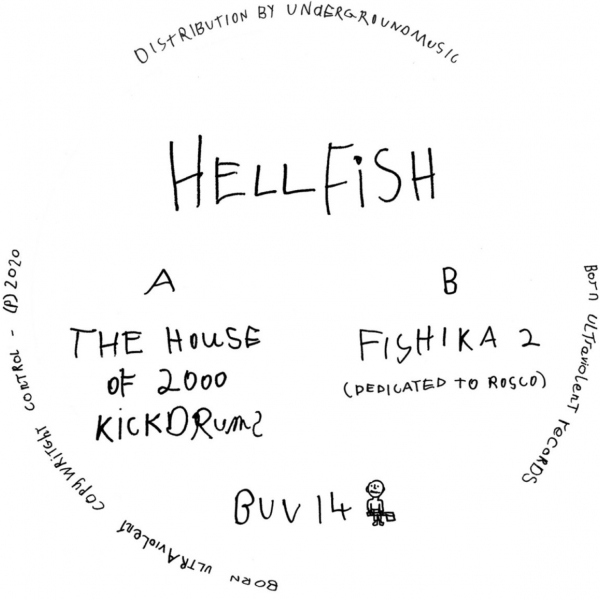 DISTRIBUTION BY UNdERGROUNDMUSIC
HELLFiSH
A
THE HOUSE
OF 2000
KiCKDRumS
B
FISHIKA 2
(DEDICATED TO ROSCO)
BUV 14
BORN ULTRAvioLENT COPYWRITGht CONTROL - (P) 2020
BOrn ULTraviolenT recoRDS